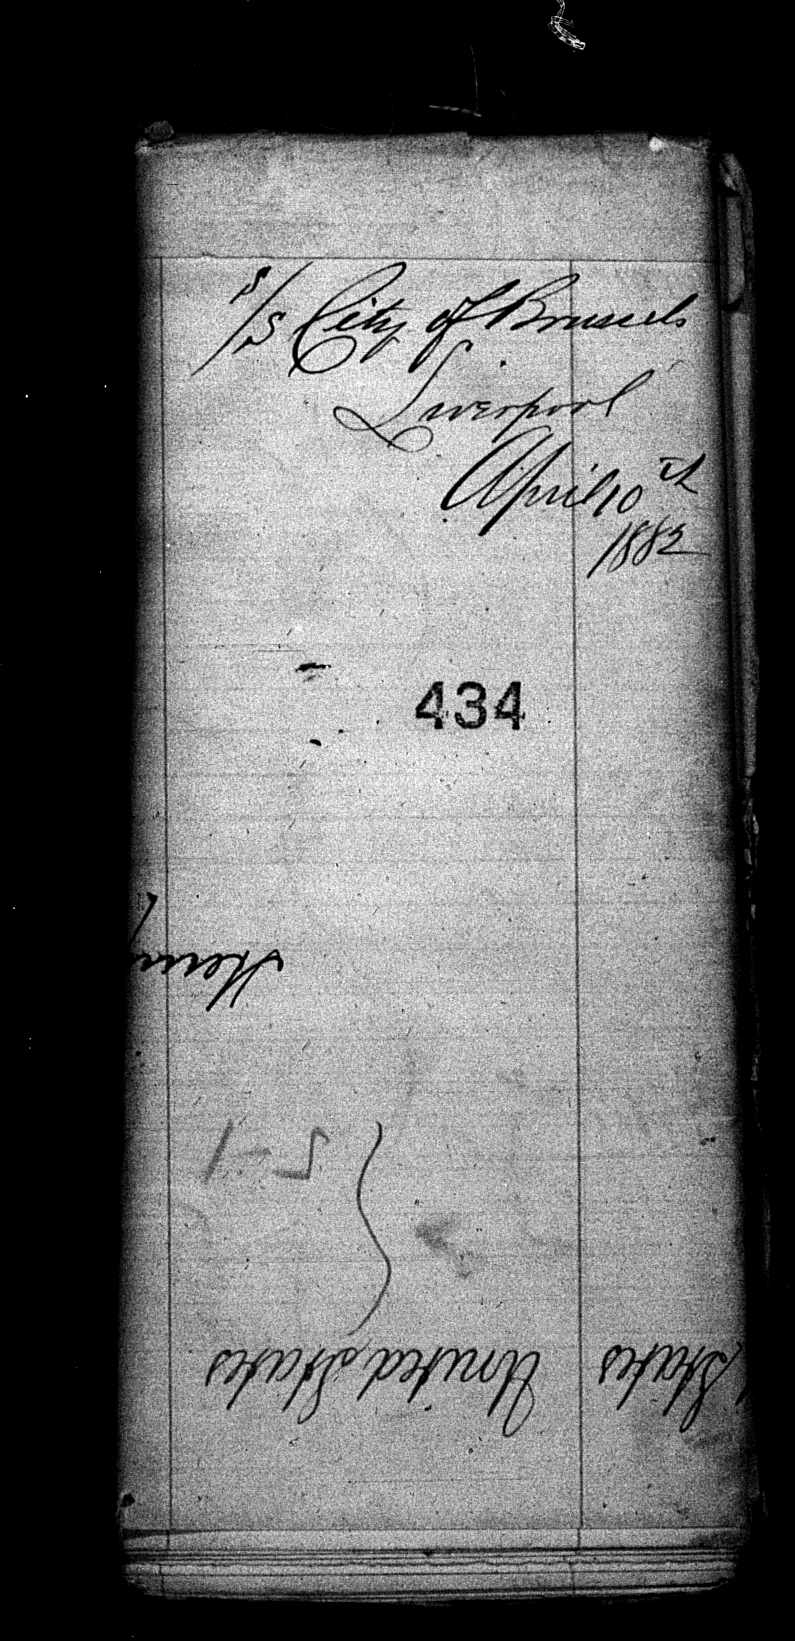 S/S City of Brussels
Liverpool
April 10th
1882
434
Henry
5-1
States United States